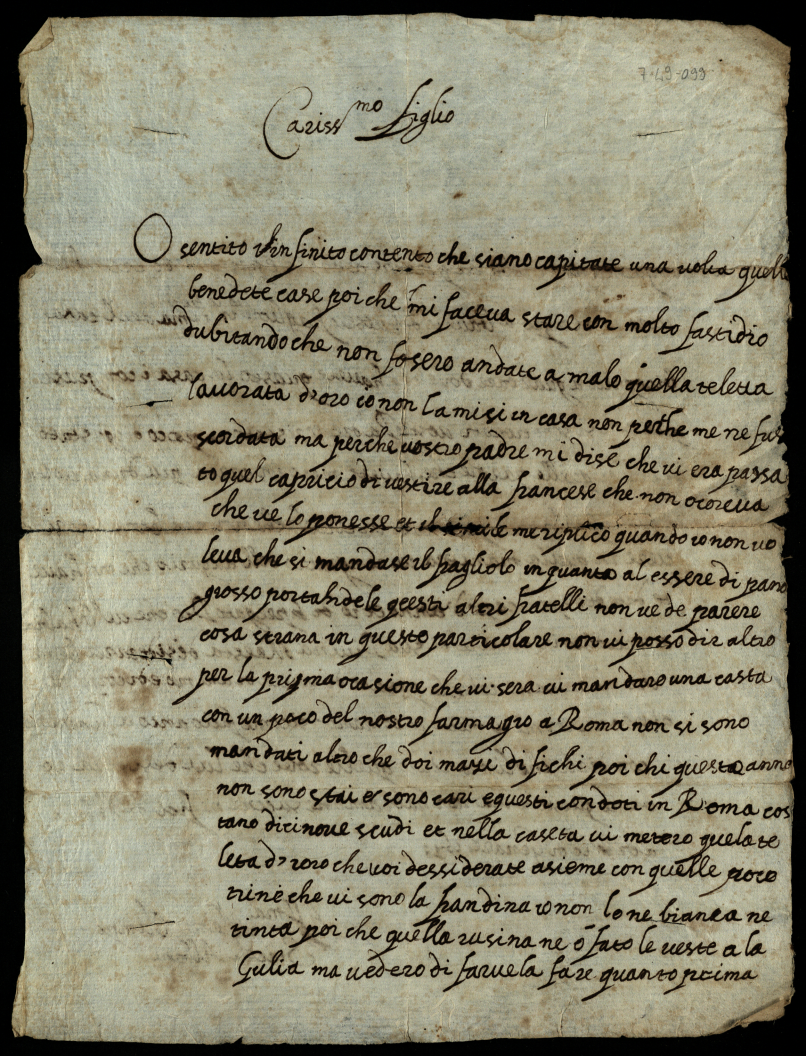 7-49-099
Cariss.mo figlio
O sentito infinito contento che siano capitate una volta quelle
benedete case poi che mi faceva stare con molto fastidio
dubitando che non fosero andate a malo quella teletta
lavorata d'oro io non la misi in casa non perche me ne fus
scordata ma perche vostro padre mi dise che vi era passa
to quel capricio di vestire alla francese che non ocoreva
che ve lo ponesse et il simile me riplico quando io non vo
leva che si mandase il fagliolo in quanto al essere di pano
grosso portandele questi altri fratelli non ve de parere
cosa strana in questo particolare non vi posso dir altro
per la prima ocasione che vi sera vi mandaro una casta
con un poco del nostro farmagio a Roma non si sono
mandati altro che doi mazi di fichi poi chi questo anno
non sono stai e sono cari e questi condoti in Roma cos
tano dicinove scudi et nella caseta vi metero quela te
leta d'oro che voi dessiderate asieme con quelle poco
trine che vi sono la handina io non lo ne bianca ne
tinta poi che quella rasina ne o fato le veste a la
Gulia ma vedero di farvela fare quanto prima